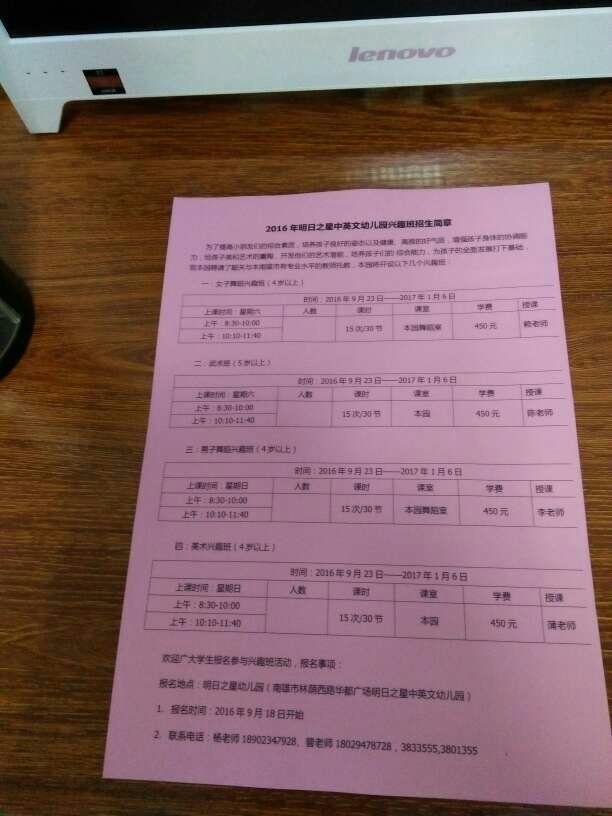 lenovo
2016 年明日之星中英文幼儿园兴趣班招生简章
为了提高小朋友们的综合素质，培养孩子良好的姿态以及健康、高雅的好气质，增强孩子身体的协调能
力，给孩子美和艺术的熏陶，开发他们的艺术潜能，培养孩子们的 综合能力，为孩子的全面发展打下基础，
现本园聘请了韶关与本南雄市有专业水平的教师托教，本园将开设以下几个兴趣班：
一：女子舞蹈兴趣班（4 岁以上）
时间：2016 年 9 月 23 日——2017 年 1 月 6 日
上课时间：星期六 人数 课时 课室 学费 授课
上午：8:30-10:00 15 次/30 节 本园舞蹈室 450 元 赖老师
上午：10:10-11:40
二：武术班（5 岁以上）
时间：2016 年 9 月 23 日——2017 年 1 月 6 日
上课时间：星期六 人数 课时 课室 学费 授课
上午：8:30-10:00 15 次/30 节 本园 450 元 陈老师
上午：10:10-11:40
三：男子舞蹈兴趣班（4 岁以上）
时间：2016 年 9 月 23 日——2017 年 1 月 6 日
上课时间：星期日 人数 课时 课室 学费 授课
上午：8:30-10:00 15 次/30 节 本园舞蹈室 450 元 李老师
上午：10:10-11:40
四：美术兴趣班（4 岁以上）
时间：2016 年 9 月 23 日——2017 年 1 月 6 日
上课时间：星期日 人数 课时 课室 学费 授课
上午：8:30-10:00 15 次/30 节 本园 450 元 蒲老师
上午：10:10-11:40
欢迎广大学生报名参与兴趣班活动，报名事项：
报名地点：明日之星幼儿园（南雄市林荫西路华都广场明日之星中英文幼儿园）
1. 报名时间：2016 年 9 月 18 日开始
2. 联系电话：杨老师 18902347928、曾老师 18029478728，3833555,3801355